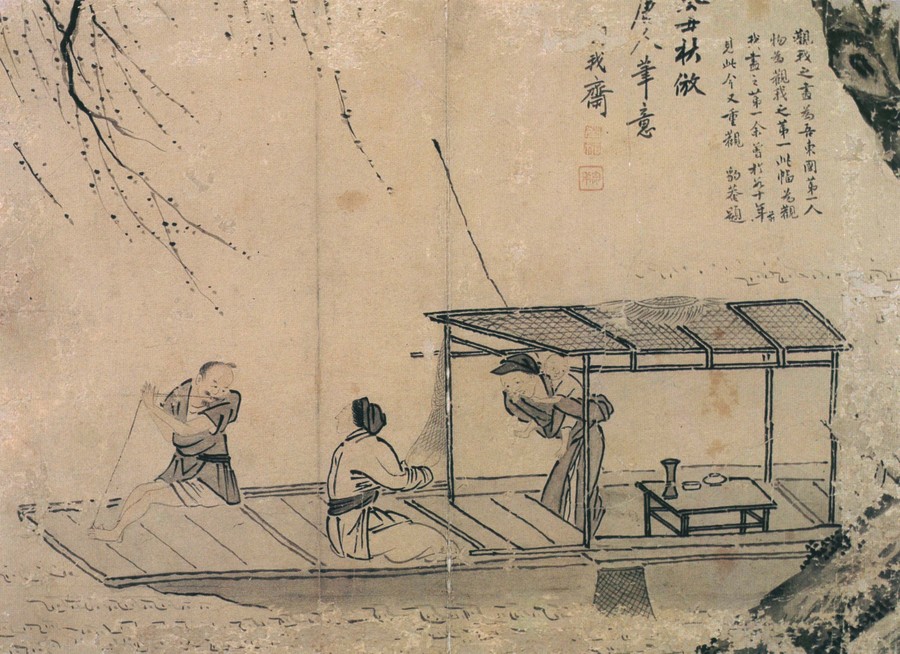 觀我之畵爲吾東國第一人
物爲觀我之第一此幅爲觀
我畵之第一余曾於十年前
見此今又重觀 豹菴題
丑秋倣
唐人筆意
我齋